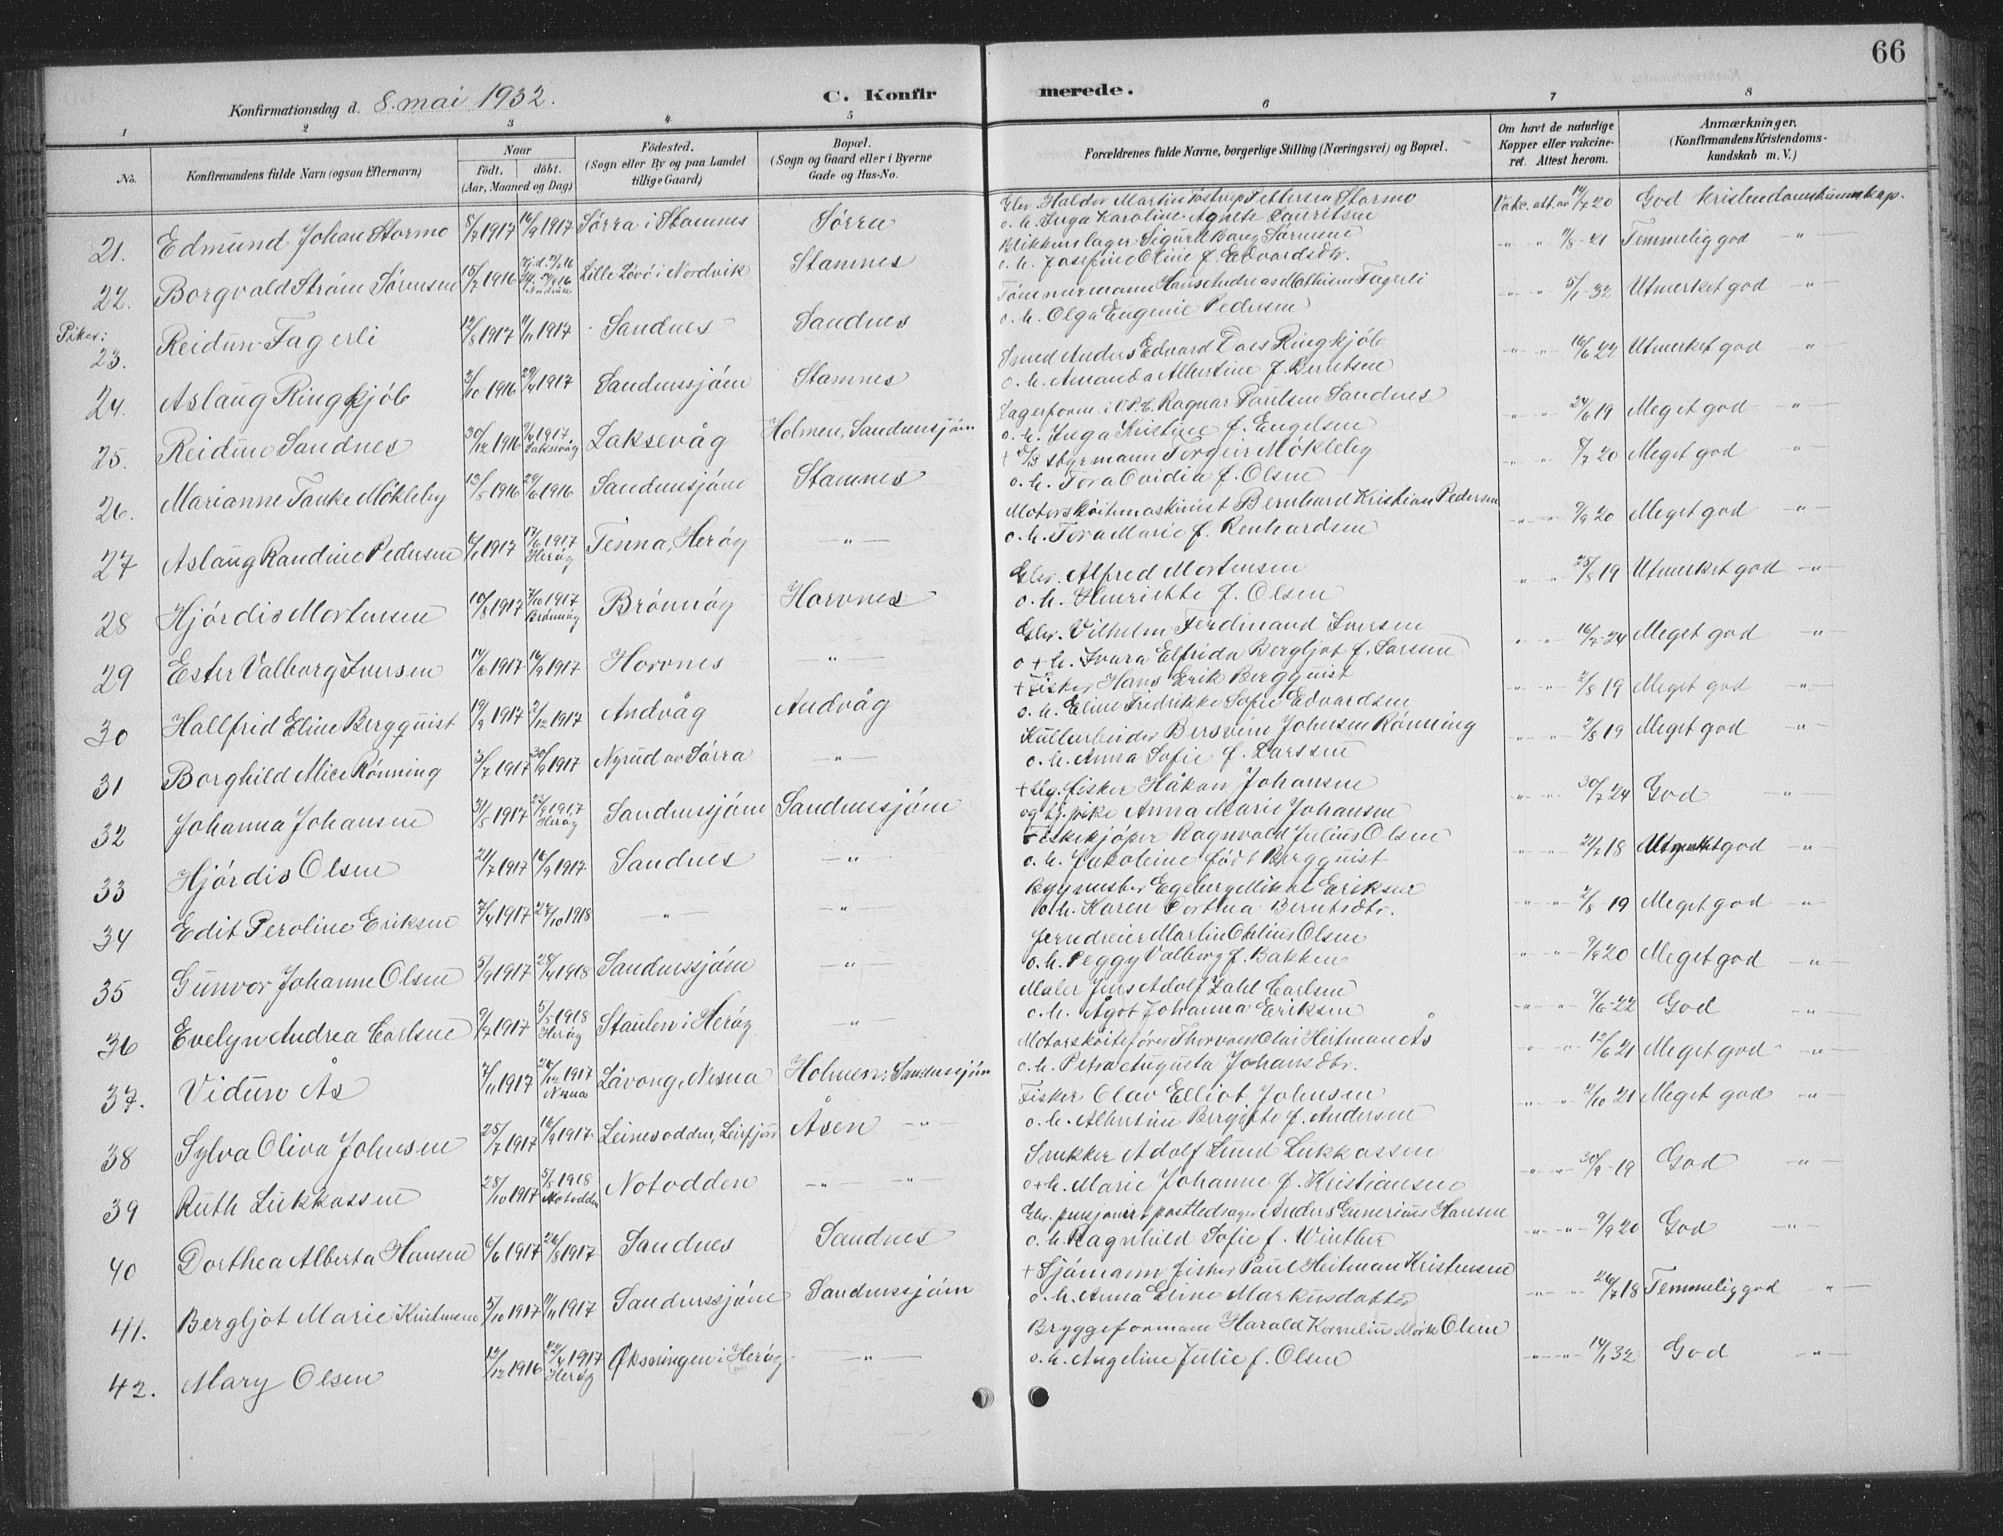 66
Konfirmationsdag d. 8. mai 1932.
C. Konfirmerede.
1 2 3 4 5 6 7 8
No.
Konfirmandens fulde Navn (ogsaa Efternavn)
Naar
født. døbt.
(Aar, Maaned og Dag)
Fødested.
(Sogn eller By og paa Landet
tillige Gaard)
Bopæl.
(Sogn og Gaard eller i Byerne
Gade og Hus-No.
Forældrenes fulde Navne, borgerlige Stilling (Næringsvei) og Bopæl.
Om havt de naturlige
Kopper eller vakcineret.
Attest herom.
Anmærkninger.
(Konfirmandens Kristendomskundskab
m. V.)
21. Edmund Johan Stormo 5/7 1917 16/9 1917 Sørra i Stamnes Sørra
Gbr. Haldor Martin Tostrup Pettersen Stormo
o. h. Inga Karoline Agnete Lauritsen
Vakc. att. av 14/7 20 God kristendomskunnskap.
22. Borgvald Strøm Sørensen 15/7 1916 Lille Løvøi Nordvik Stamnes
Blikkenslager Sigurd Bang Sørensen
o. h. Josefine Oline f. Edvardsdtr.
" " 11/8 - 21 Temmelig god "
Piker:
23. Reidun Fagerli 12/8 1917 11/11 1917 Sandnes Sandnes
Tømmermann Hans Andreas Mathisen Fagerli
o. h. Olga Eugenie Pedersen
" " 5/1 - 32 Utmerket god "
24. Aslaug Ringkjøb 3/10 1916 29/4 1917 Sandnessjøen Stamnes
Smed Anders Edvard Lars Ringkjøb
o. h. Amanda Albertine f. Berntsen
" " 16/6 22 Utmerket god "
25. Reidun Sandnes 30/12 1916 9/4 1917 Laksevåg Laksevåg Holmen, Sandnessjøen
Lagerform. i V.P.C. Ragnar Paulsen Sandnes
o. h. Inga Kristine f. Engelsen
" " 24/6 19 Meget god "
26. Marianne Tanke Møkleby 13/5 1916 29/6 1916 Sandnessjøen Stamnes
+ styrmann Torgeir Møkleby
o. h. Tora Ovidia f. Olsen
" " 8/7 20 Meget god "
27 Aslaug Randine Pedersen 6/1 1917 17/6 1917 Herøy Tenna, Herøy "
Motorskøitemaskinist Bernhard Kristian Pedersen
o. h. Tora Marie f. Renhardsen
" " 9/9 20 Meget god "
28 Hjørdis Mortensen 10/8 1917 7/10 1917 Brønnøy Brønnøy Horvnes
Gbr. Alfred Mortensen
o. h. Henriette f. Olsen
" " 25/8 19 Utmerket god "
29 Ester Valborg Iversen 14/6 1917 16/9 1917 Horvnes "
Gbr. Vilhelm Ferdinand Iversen
o + h. Ivara Elfrida Bergljot f. Larsen
" " 16/7 - 24 Meget god "
30 Hallfrid Eline Bergquist 19/9 1917 2/12 1917 Andvåg Andvåg
+ Fisker Hans Erik Bergquist
o. h. Eline Fredrikke Sofie Edvardsen
" " 2/8 19 Meget god "
31 Borghild Alice Rønning 3/7 1917 30/9 1917 Nyrud av Sørra "
Kullarbeider Bersvein Johnsen Rønning
o. h. Anna Sofie f. Larssen
" " 2/8 19 Meget god "
32 Johanna Johansen 31/5 1917 23/9 1917 Herøy Sandnessjøen Sandnessjøen
+ Ug. fisker Håkon Johansen
og tj. pike Anna Marie Johansen
" " 30/7 24 God "
33 Hjørdis Olsen 21/7 1917 16/9 1917 Sandnes "
+ Fiskekjøper Ragnvald Julius Olsen
o. h. Jakobine født Bergquist
" " 24/7 18 Utmerket god "
34 Edit Peroline Eriksen 7/4 1917 27/10 1918 " "
Bygmester Egeberg Mikal Eriksen
o. h. Karen Dorthea Berntsdtr.
" " 2/8 19 Meget god "
35 Gunvor Johanne Olsen 5/9 1917 28/4 1918 Sandnessjøen "
Jerndreier Martin Oklius Olsen
o. h. Peggy Valborg f. Bakken
" " 9/9 20 Meget god "
36 Evelyn Andrea Carlsen 9/7 1917 5/5 1918 Herøy Staulen i Herøy "
Maler Jens Adolf Zahl Carlsen
o. h. Ågot Johanna Eriksen
" " 9/6 - 22 God "
37. Vidun Ås 7/11 1917 26/12 1917 Nesna Låvong, Nesna Holmen, Sandnessjøen
Motorskøitefører Thorvald Olai Heitman Ås
o. h. Petra Augusta Johansdtr.
" " 12/6 21 Meget god "
38 Sylva Oliva Johnsen 25/7 1917 16/9 1917 Leinesodden, Leirfjord Åsen "
Fisker Olav Elliot Johnsen
o. h. Albertine Bergitte f. Andersen
" " 2/10 21 Meget god "
39 Ruth Lukkassen 28/10 1917 5/5 1918 Notodden Notodden " "
Snekker Adolf Lund Lukkassen
o + h. Marie Johanne f. Kristiansen
" " 30/9 - 19 God "
40 Dorthea Alberta Hansen 6/6 1917 26/8 1917 Sandnes Sandnes
Gbr. pensjonert postledsager Anders Gunerius Hansen
o. h. Ragnhild Sofie f. Winther
" " 9/9 20 God "
41. Bergljot Marie Kristensen 5/10 1917 11/11 1917 Sandnessjøen Sandnessjøen
+ Sjømann fisker Paul Heitman Kristensen
o. h. Anna Eline Markusdatter
" " 26/7 18 Temmelig god "
42. Mary Olsen 12/12 1916 22/4 1917 Herøy Øksningen i Herøy "
Bryggeformann Harald Kornelius Mørk Olsen
o. h. Angeline Julie f. Olsen
" " 14/1 32 God "